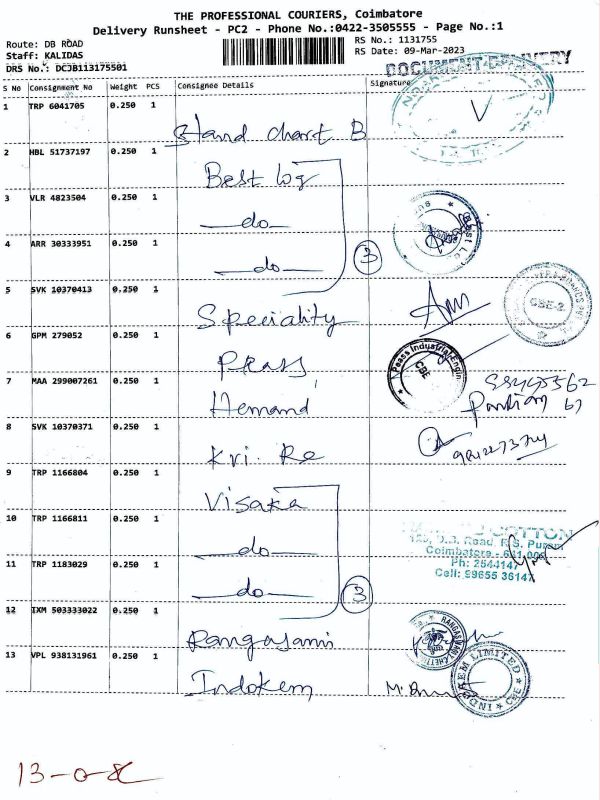 THE PROFESSIONAL COURIERS, Coimbatore
Delivery Runsheet - PC2 - Phone No.:0422-3505555 - Page No.:1
Route: DB ROAD
RS No.: 1131755
Staff: KALIDAS
RS Date: 09-Mar-2023
DRS No.: DCJB113175501
DOCUMENT DELIVERY
S No Consignment No Weight PCS Consignee Details Signature
1 TRP 6041705 0.250 1
Stand chart B
2 HBL 51737197 0.250 1
Best log
3 VLR 4823504 0.250 1
do
4 ARR 30333951 0.250 1
do
3
5 SVK 10370413 0.250 1
Speciality
CBE-2
6 GPM 279052 0.250 1
Peass
Peass Industrial Engin
CBE
7 MAA 299007261 0.250 1
Hemand
8 SVK 10370371 0.250 1
Kri. Re
9 TRP 1166804 0.250 1
Visaka
10 TRP 1166811 0.250 1
do
COTTON
D.B. Road, R.S. Puram
Coimbatore - 641 002
Ph: 2544147
Cell: 99655 36147
11 TRP 1183029 0.250 1
do
3
12 IXM 503333022 0.250 1
Rangasami
13 VPL 938131961 0.250 1
Indokem
INDOKEM LIMITED
CBE
13-0-8